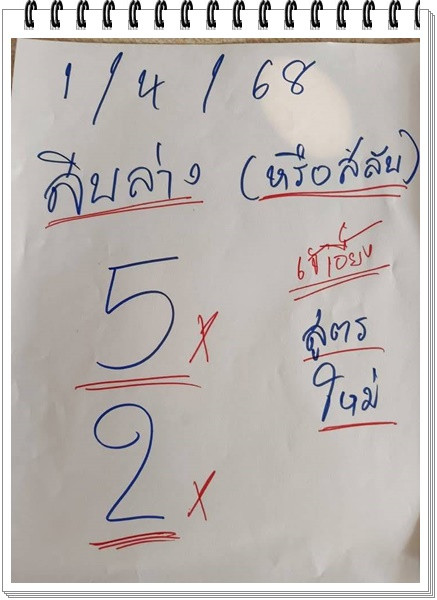 1 / 4 / 68
สิบล่าง (หรือสลับ)
5 x
2 x
สูตร
ใหม่